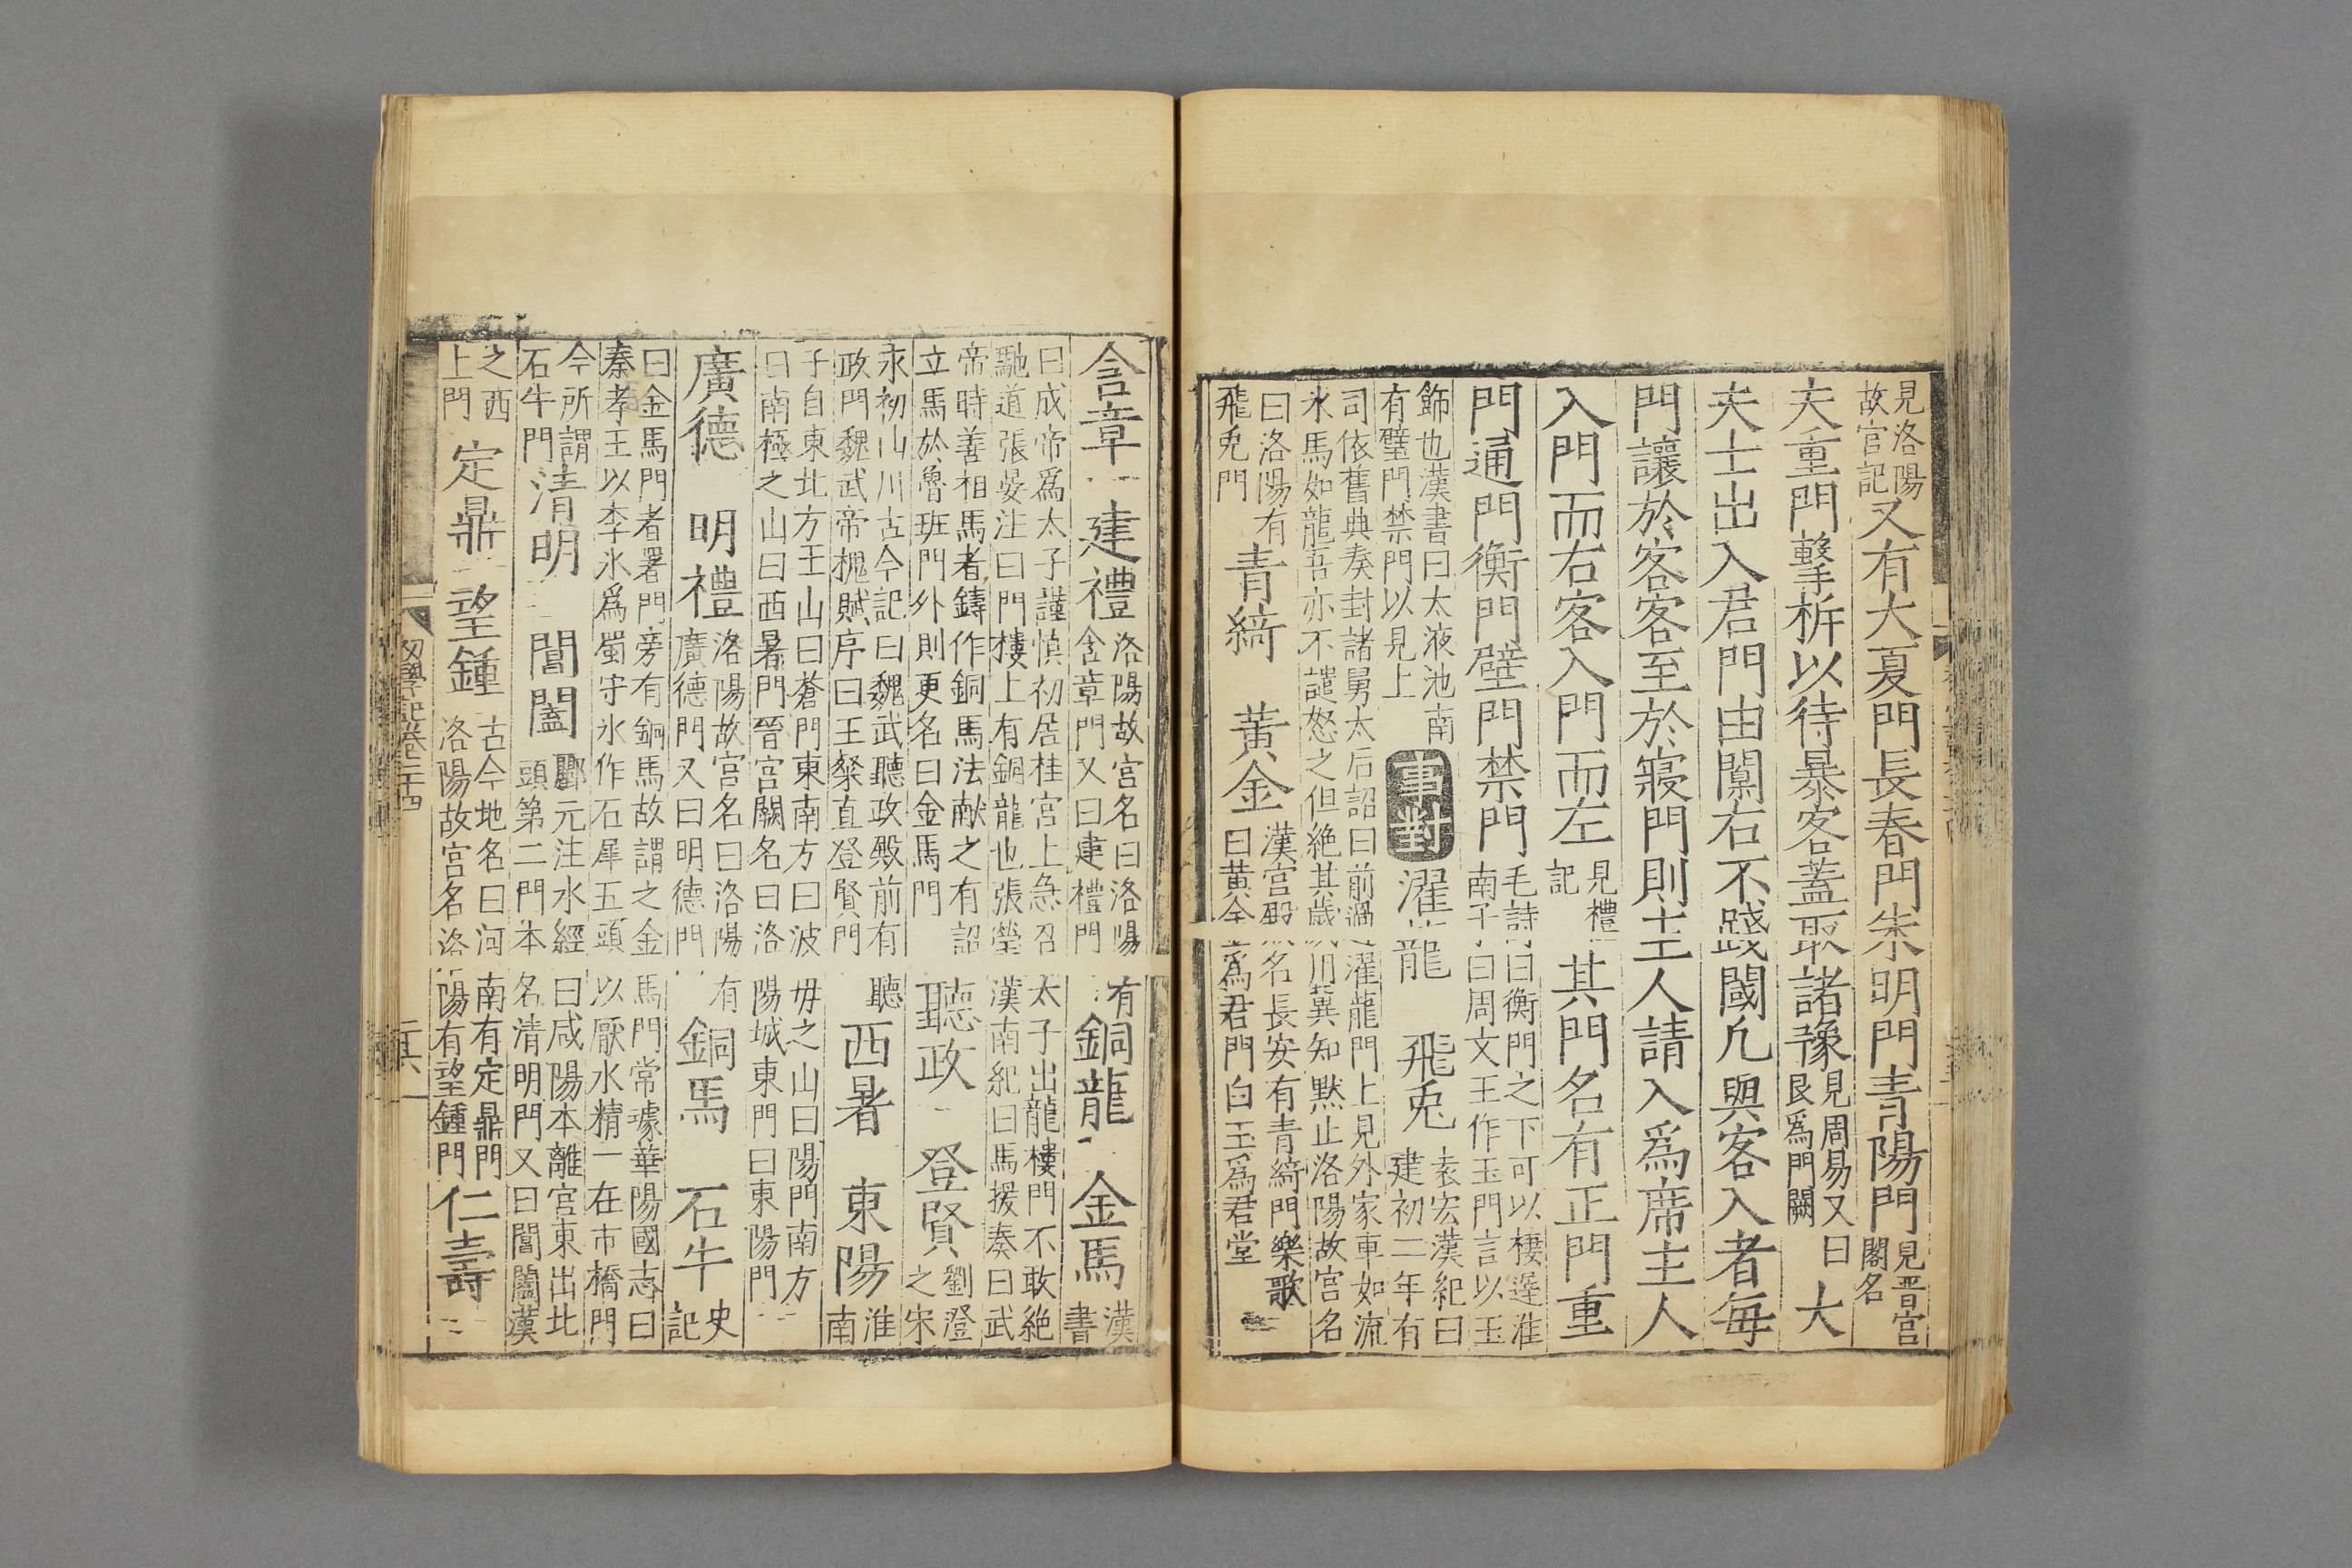 見洛陽故宮記又有大夏門長春門朱明門青陽門見晋宮閣名
夫重門擊柝以待暴客蓋取諸豫見周易又曰艮爲門闕大
夫士出入君門由闑右不踐閾凡與客入者每
門讓於客客至於寢門則主人請入爲席主人
入門而右客入門而左見禮記其門名有正門重
門通門衡門璧門禁門毛詩曰衡門之下可以棲遲淮南子曰周文王作玉門言以玉
飾也漢書曰太液池南有璧門禁門以見上事對濯龍飛兎袁宏漢紀曰建初二年有
司依舊典奏封諸舅太后詔曰前過濯龍門上見外家車如流
水馬如龍吾亦不譴怒之但絶其歲用冀其知默止洛陽故宮名
曰洛陽有飛兎門青綺黃金漢宮殿名長安有青綺門樂歌曰黃金爲君門白玉爲君堂
含章建禮洛陽故宮名曰洛陽有含章門又曰建禮門銅龍金馬漢書
曰成帝爲太子謹慎初居桂宮上急召太子出龍樓門不敢絶
馳道張晏注曰門樓上有銅龍也張瑩漢南紀曰馬援奏曰武
帝時善相馬者鑄作銅馬法献之有詔
立馬於魯班門外則更名曰金馬門聽政登賢劉澄之宋
永初山川古今記曰魏武聽政殿前有聽
政門魏武帝槐賦序曰王粲直登賢門西暑東陽淮南
子自東北方土山曰蒼門東南方曰波毋之山曰陽門南方
曰南極之山曰西暑門晉宮闕名曰洛陽城東門曰東陽門
廣德明禮洛陽故宮名曰洛陽有廣德門又曰明德門銅馬石牛史記
曰金馬門者署門旁有銅馬故謂之金馬門常璩華陽國志曰
秦孝王以李氷爲蜀守氷作石犀五頭以厭水精一在市橋門
今所謂石牛門清明閶闔酈元注水經曰咸陽本離宮東出北頭第二門本名清明門又曰閶闔漢
之西上門定鼎望鍾古今地名曰河南有定鼎門洛陽故宮名洛陽有望鍾門仁壽
初學記卷二十四
二六